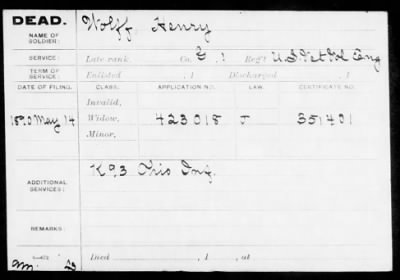 DEAD.
NAME OF SOLDIER: Wolff, Henry
SERVICE: Late rank, Co. G, 1 Reg't U.S. Vet Vol Eng
TERM OF SERVICE: Enlisted , 1 Discharged , 1
DATE OF FILING. CLASS. APPLICATION NO. LAW. CERTIFICATE NO.
Invalid,
1890 May 14 Widow, 423018 J 351401
Minor,
ADDITIONAL SERVICES: K 93 Ohio Inf.
REMARKS:
Died , 1 , at